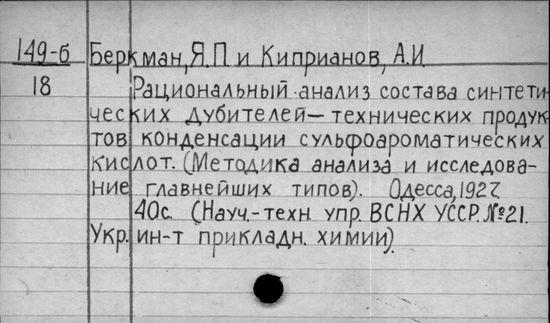 149-б Беркман, Я.П. и Киприанов, А.И.
18 Рациональный анализ состава синтети-
ческих дубителей — технических продук-
тов конденсации сульфоароматических
кислот. (Методика анализа и исследова-
ние главнейших типов). Одесса, 1927.
40с. (Науч.-техн. упр. ВСНХ УССР. №21.
Укр. ин-т прикладн. химии).